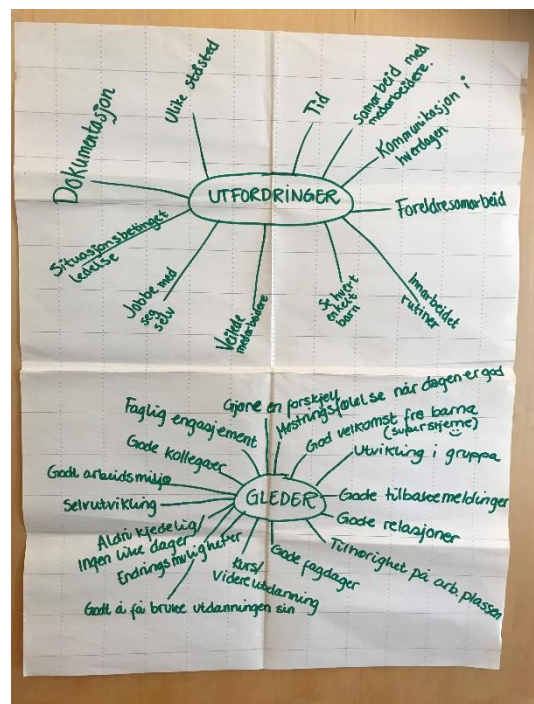 UTFORDRINGER
Dokumentasjon
Ulike ståsted
Tid
Samarbeid med
medarbeidere.
Kommunikasjon i
hverdagen
Foreldresamarbeid
Innarbeidet
rutiner
Se hvert
enkelt
barn
Veilede
medarbeidere
Jobbe med
seg
selv
Situasjonsbetinget
ledelse
GLEDER
Gjøre en forskjell
Mestringsfølelse når dagen er god
God velkomst fra barna
(superstjerne)
Utvikling i gruppa
Gode tilbakemeldinger
Gode relasjoner
Tilhørighet på arb.plassen
Gode fagdager
Kurs/
Videreutdanning
Godt å få bruke utdanningen sin
Endringsmuligheter
Aldri kjedelig/
Ingen like dager
Selvutvikling
Godt arbeidsmiljø
Gode kollegaer
Faglig engasjement